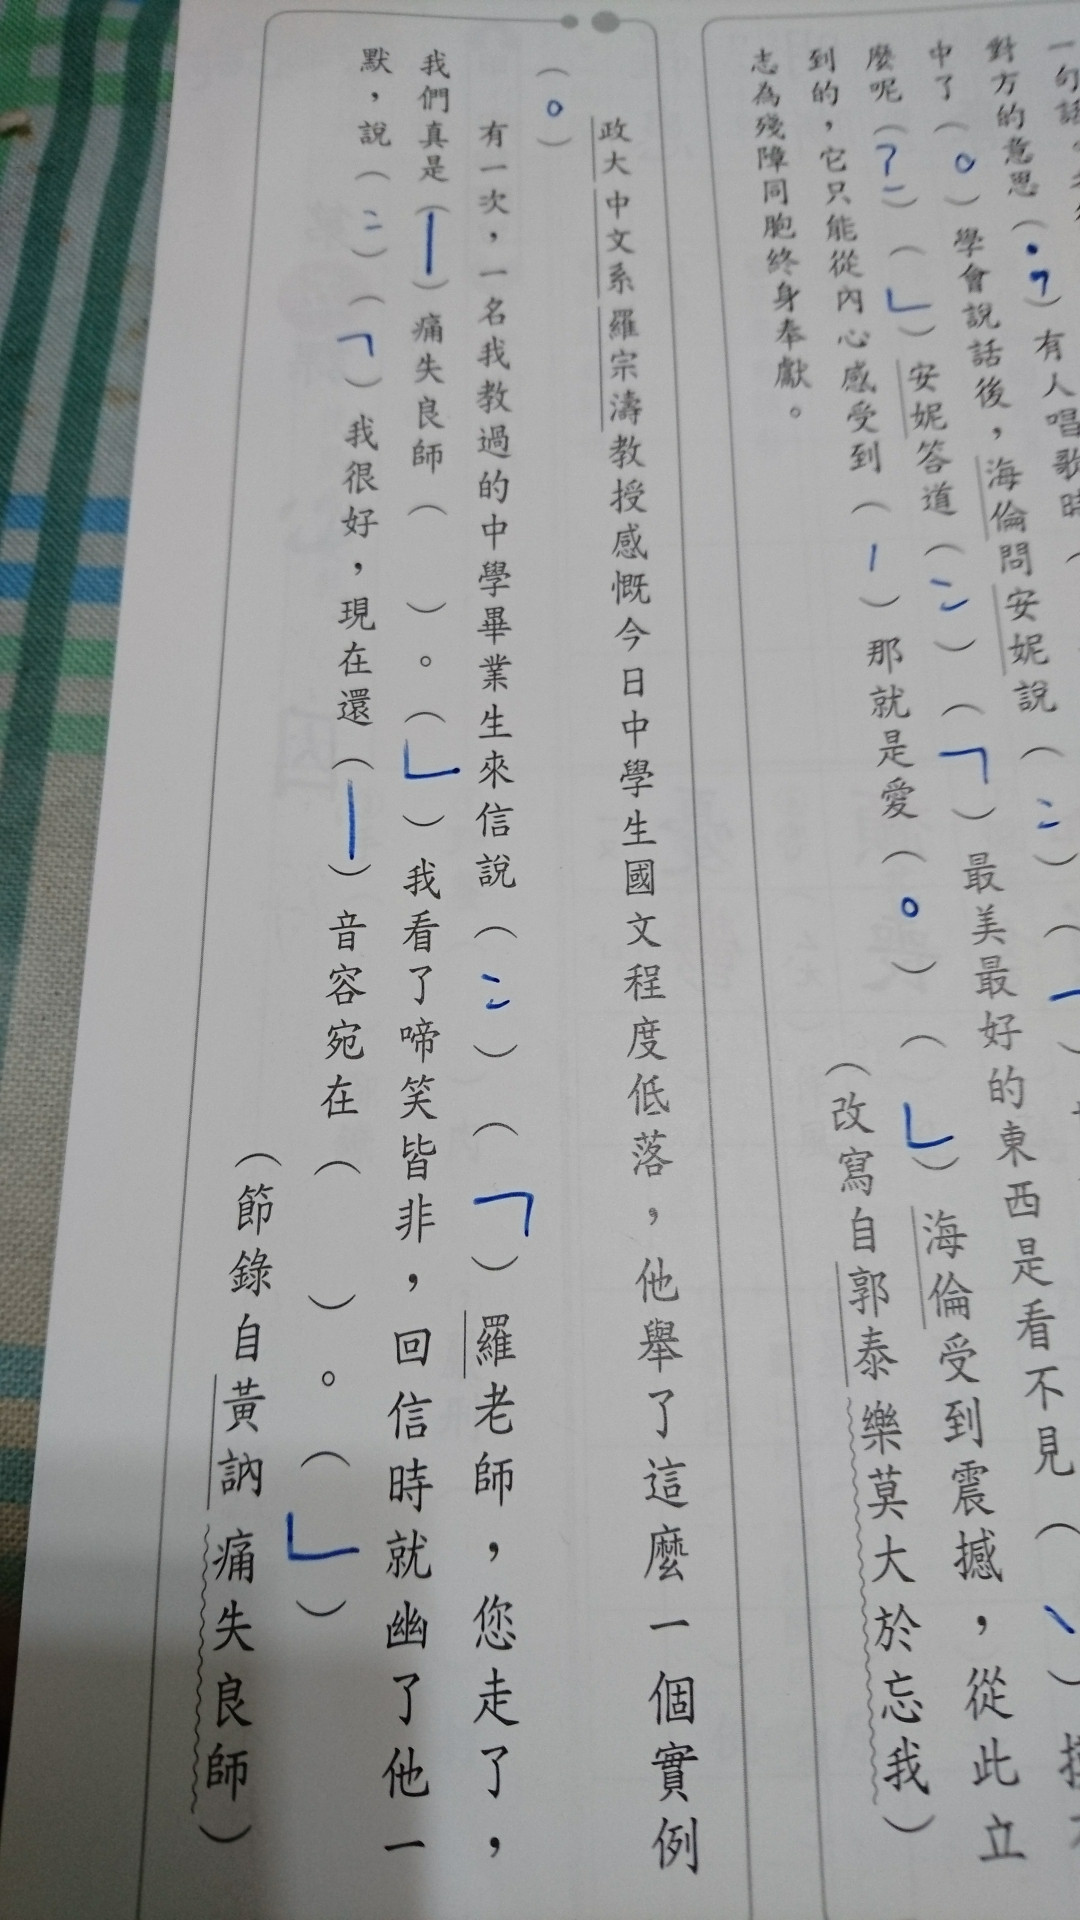 一句話
對方的意思（；）有人唱歌時（
中了（。）學會說話後，海倫問安妮說（：）（
麼呢（？）（」）安妮答道（：）（「）最美最好的東西是看不見（、）
到的，它只能從內心感受到（—）那就是愛（。）（」）海倫受到震撼，從此立
志為殘障同胞終身奉獻。
（改寫自郭泰樂莫大於忘我）
政大中文系羅宗濤教授感慨今日中學生國文程度低落，他舉了這麼一個實例
（。）
有一次，一名我教過的中學畢業生來信說（：）（「）羅老師，您走了，
我們真是（—）痛失良師（　）。（」）我看了啼笑皆非，回信時就幽了他一
默，說（：）（「）我很好，現在還（—）音容宛在（　）。（」）
（節錄自黃訥痛失良師）